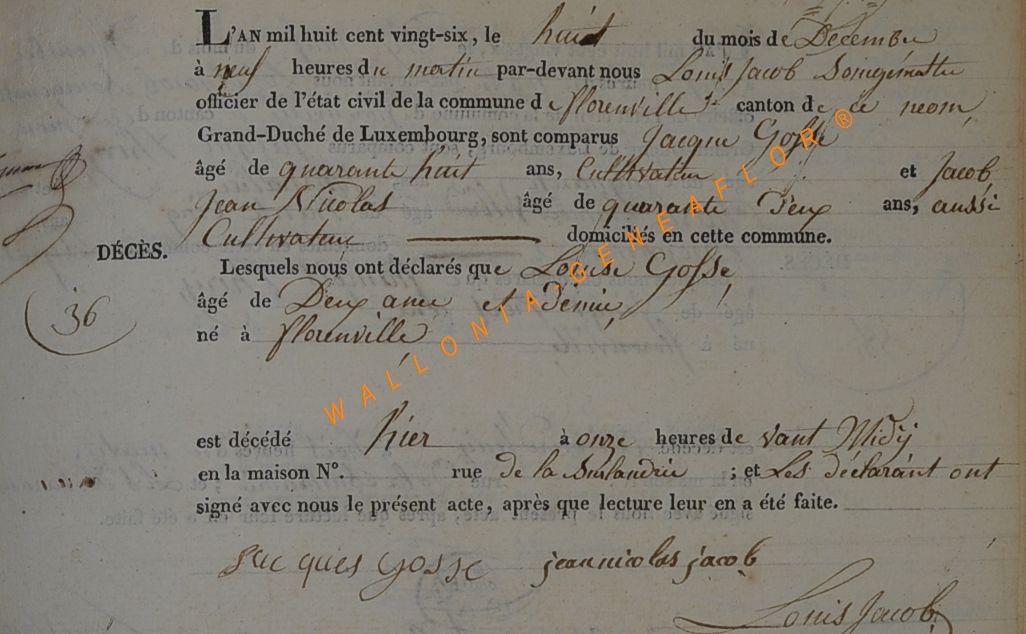 L'AN mil huit cent vingt-six, le huit du mois de Décembre
à neuf heures du matin par-devant nous Louis Jacob
officier de l'état civil de la commune de florenville canton de ce neom,
Grand-Duché de Luxembourg, sont comparus Jacque Gosse
âgé de quarante huit ans, Cultivateur et Jacob
Jean Nicolas âgé de quarante Deux ans, aussi
Cultivateur domiciliés en cette commune.
DÉCÈS.
Lesquels nous ont déclarés que Louise Gosse,
36
âgé de Deux anee et Demie,
né à florenville
est décédé hier à onze heures de vant Midÿ
en la maison N°. rue de la ; et Les déclarant ont
signé avec nous le présent acte, après que lecture leur en a été faite.
jacques gosse jeannicolas jacob
Louis Jacob
WALLONIA.GENEAFLOR®